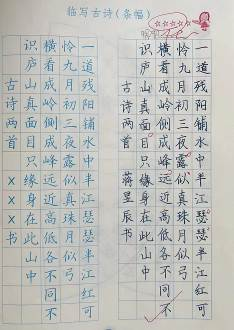 临写古诗(条幅)
一道残阳铺水中半江瑟瑟半江红可
怜九月初三夜露似真珠月似弓
横看成岭侧成峰远近高低各不同不
识庐山真面目只缘身在此山中
古诗两首 蒋昱辰书
一道残阳铺水中半江瑟瑟半江红可
怜九月初三夜露似真珠月似弓
横看成岭侧成峰远近高低各不同不
识庐山真面目只缘身在此山中
古诗两首×××书